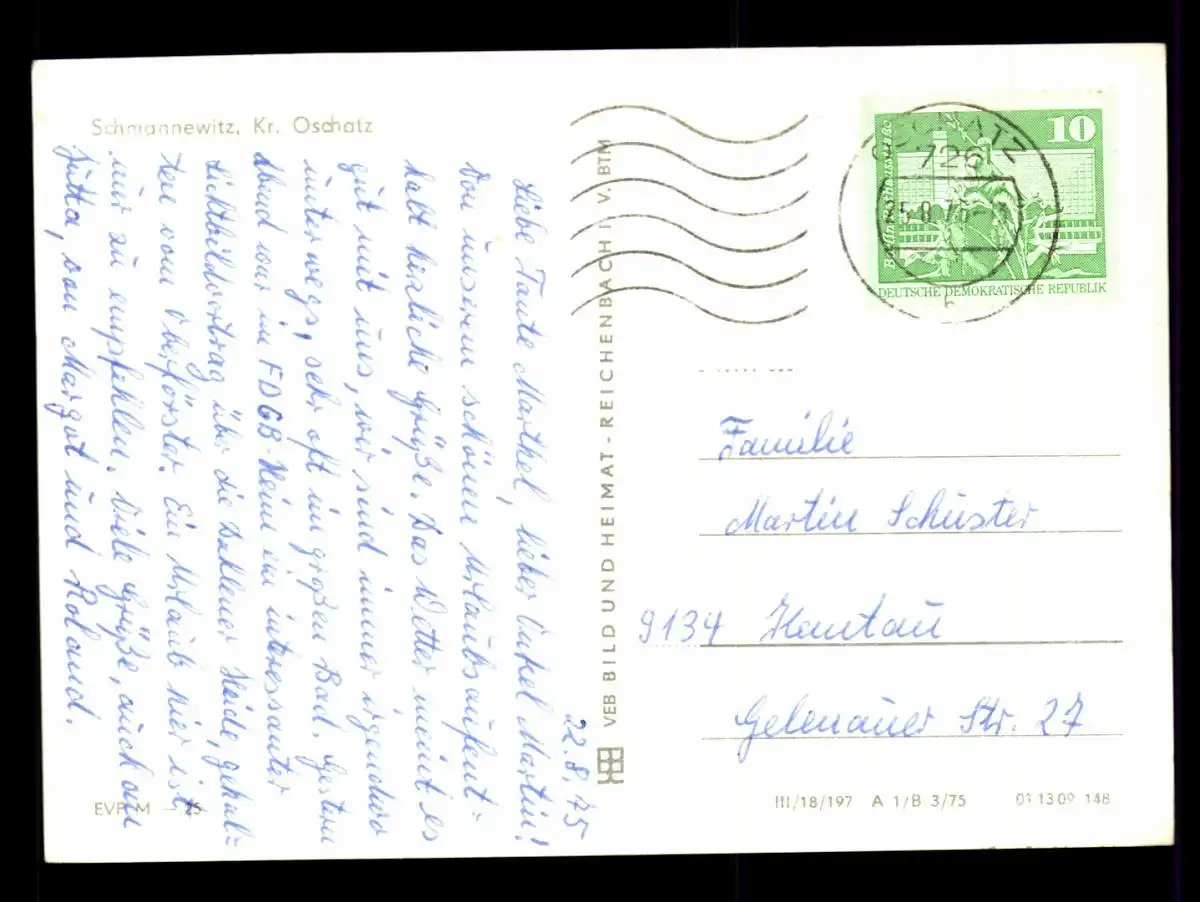 Schmannewitz, Kr. Oschatz
22.8.75
Liebe Tante Marthel, lieber Onkel Martin!
Von unserem schönen Urlaubsaufent-
halt herzliche Grüße. Das Wetter meint es
gut mit uns, wir sind immer irgendwo
unterwegs, sehr oft im großen Bad. Gestern
Abend war im FDGB-Heim ein interessanter
Lichtbildvortrag über die Dahlener Heide, gehal=
ten vom Oberförster. Ein Urlaub hier ist
nur zu empfehlen. Viele Grüße, auch an
Jutta, von Margot und Roland.
EVP M -,25
VEB BILD UND HEIMAT - REICHENBACH I. V. BTM
OSCHATZ
726
10
Berlin, Rathausstraße
DEUTSCHE DEMOKRATISCHE REPUBLIK
Familie
Martin Schuster
9134
Gelenauer Str. 27
III/18/197 A 1/B 3/75 01 13 09 148